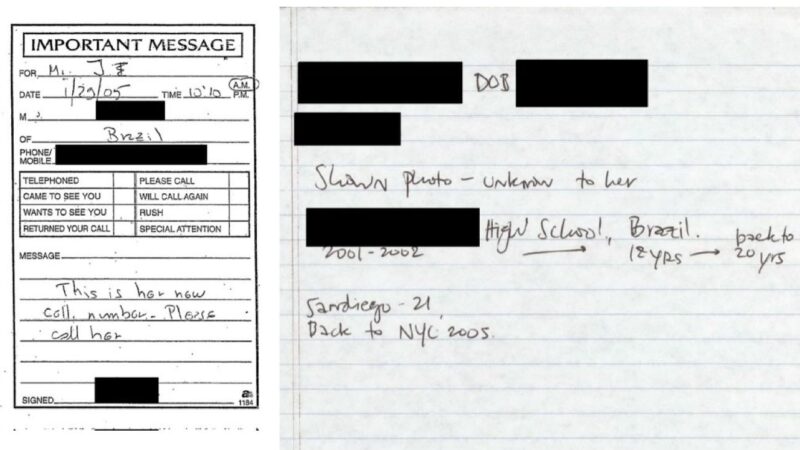 IMPORTANT MESSAGE
FOR Mr. JE
DATE 1/29/05 TIME 10:10 A.M. P.M.
M
OF Brazil
PHONE/
MOBILE
TELEPHONED PLEASE CALL
CAME TO SEE YOU WILL CALL AGAIN
WANTS TO SEE YOU RUSH
RETURNED YOUR CALL SPECIAL ATTENTION
MESSAGE
This is her new
cell. number. Please
call her
SIGNED
1184
DOB
Shown photo - unknown to her
High School, Brazil. back to
2001-2002 18 yrs → 20 yrs
Sandiego - 21
Back to NYC 2005.